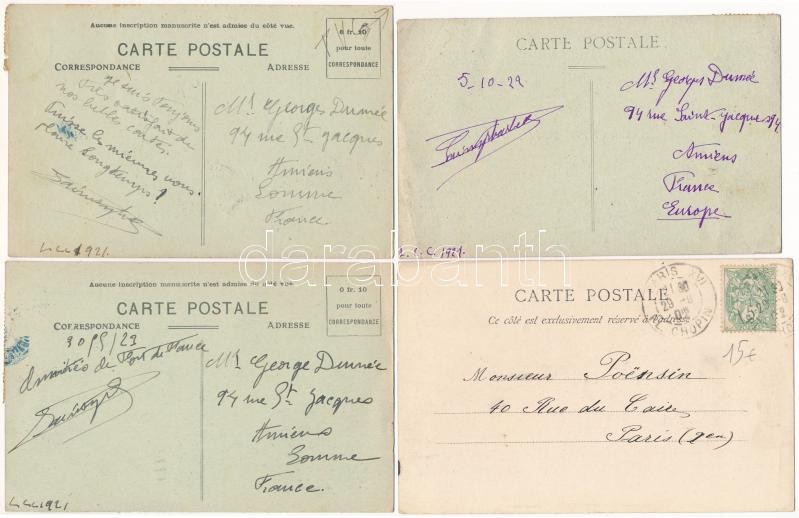 Aucune inscription manuscrite n'est admise du côté vue.
CARTE POSTALE
CORRESPONDANCE
ADRESSE
0 fr. 10
pour toute
CORRESPONDANCE
Je suis toujours
très satisfait de
nos belles cartes.
les miennes vous
plaire longtemps!
Mr Georges Dumée
94 rue St Jacques
Amiens
Somme
France.
L.C.C. 1921.
CARTE POSTALE
5-10-22
Mr Georges Dumée
94 rue Saint-Jacques 94
Amiens
France
Europe
L.C.C. 1921.
Aucune inscription manuscrite n'est admise du côté vue.
CARTE POSTALE
CORRESPONDANCE
ADRESSE
0 fr. 10
pour toute
CORRESPONDANCE
Amitiés de Fort de France
Mr George Dumée
94 rue St Jacques
Amiens
Somme
France.
L.C.C. 1921
CARTE POSTALE
Ce côté est exclusivement réservé à l'adresse
PARIS XVI
CHOPIN
15€
Monsieur Poënsin
40 Rue du Caire
Paris
darabanth